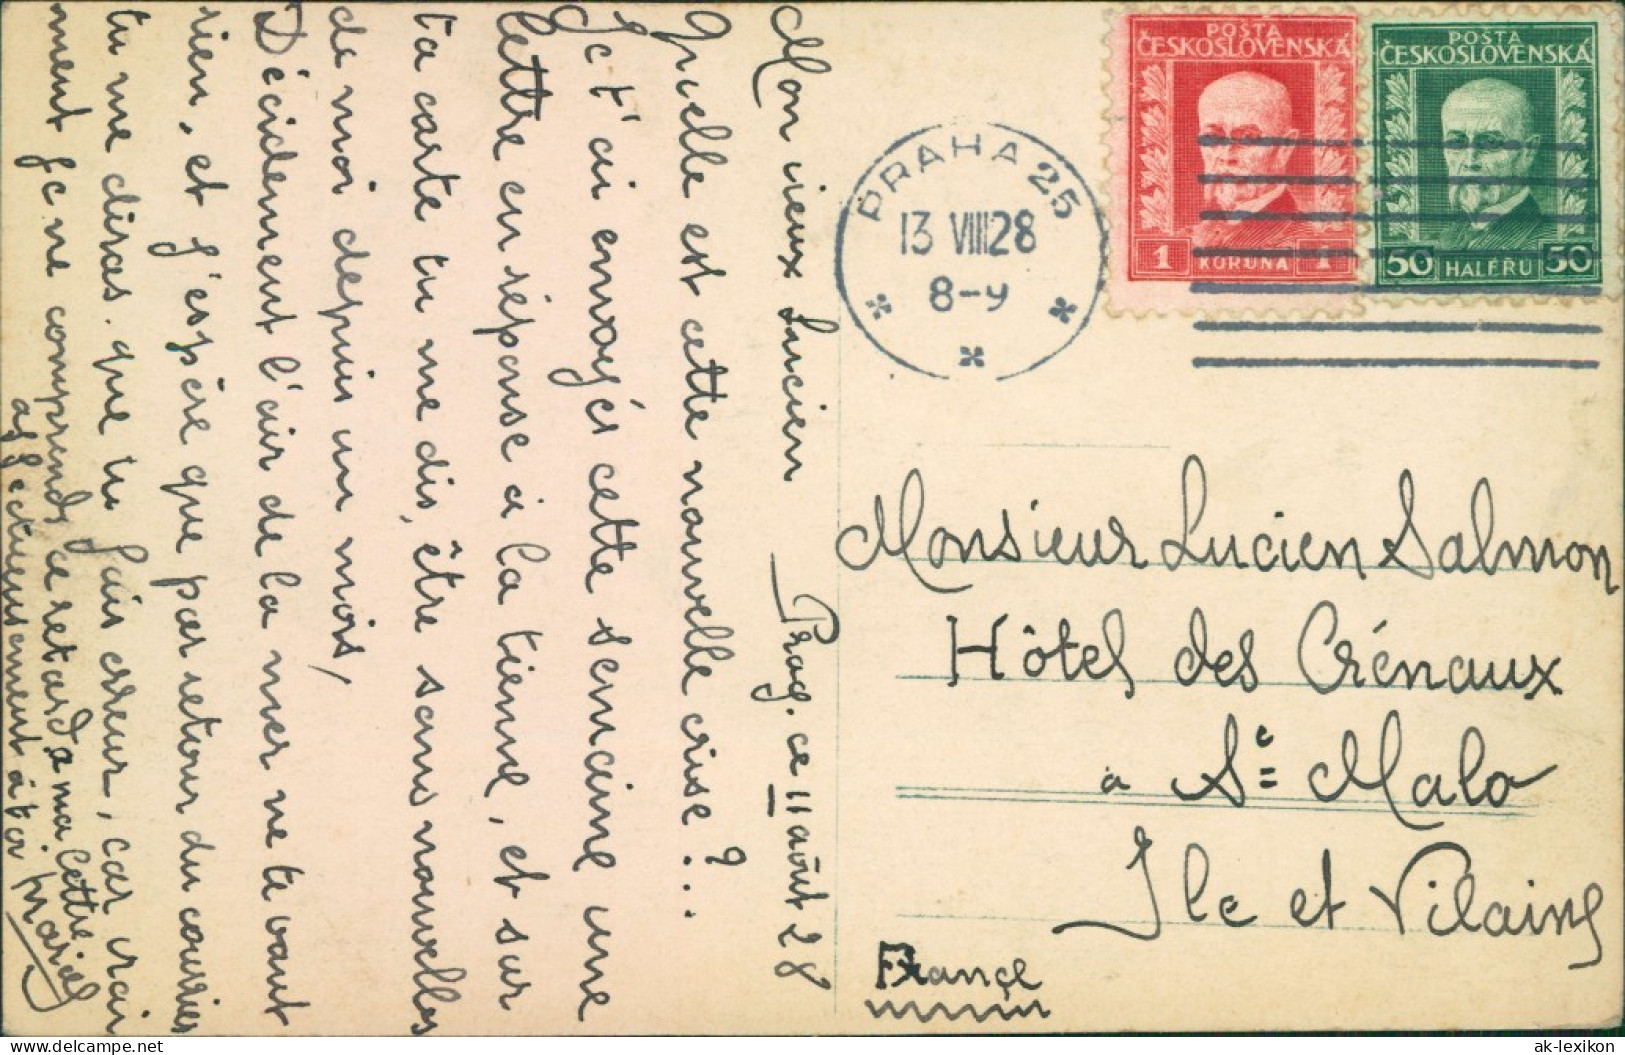 Mon vieux Lucien Prag. ce 11 août 28
Quelle est cette nouvelle crise ?..
Je t'ai envoyés cette semaine une
lettre en réponse à la tienne, et sur
ta carte tu me dis, être sans nouvelles
de moi depuis un mois,
Décidement l'air de la mer ne te vaut
rien, et j'espère que par retour du courrier
tu me diras. que tu fais erreur, car vrai
ment je ne comprends ce retard à ma lettre.
affectueusement à toi. Marcel
POSTA
ČESKOSLOVENSKÁ
1 KORUNA 1
POSTA
ČESKOSLOVENSKÁ
50 HALÉŘŮ 50
PRAHA 25
13 VIII 28
8-9
Monsieur Lucien Salmon
Hôtel des Crénaux
à St Malo
Ile et Vilaine
France
delcampe.net
ak-lexikon